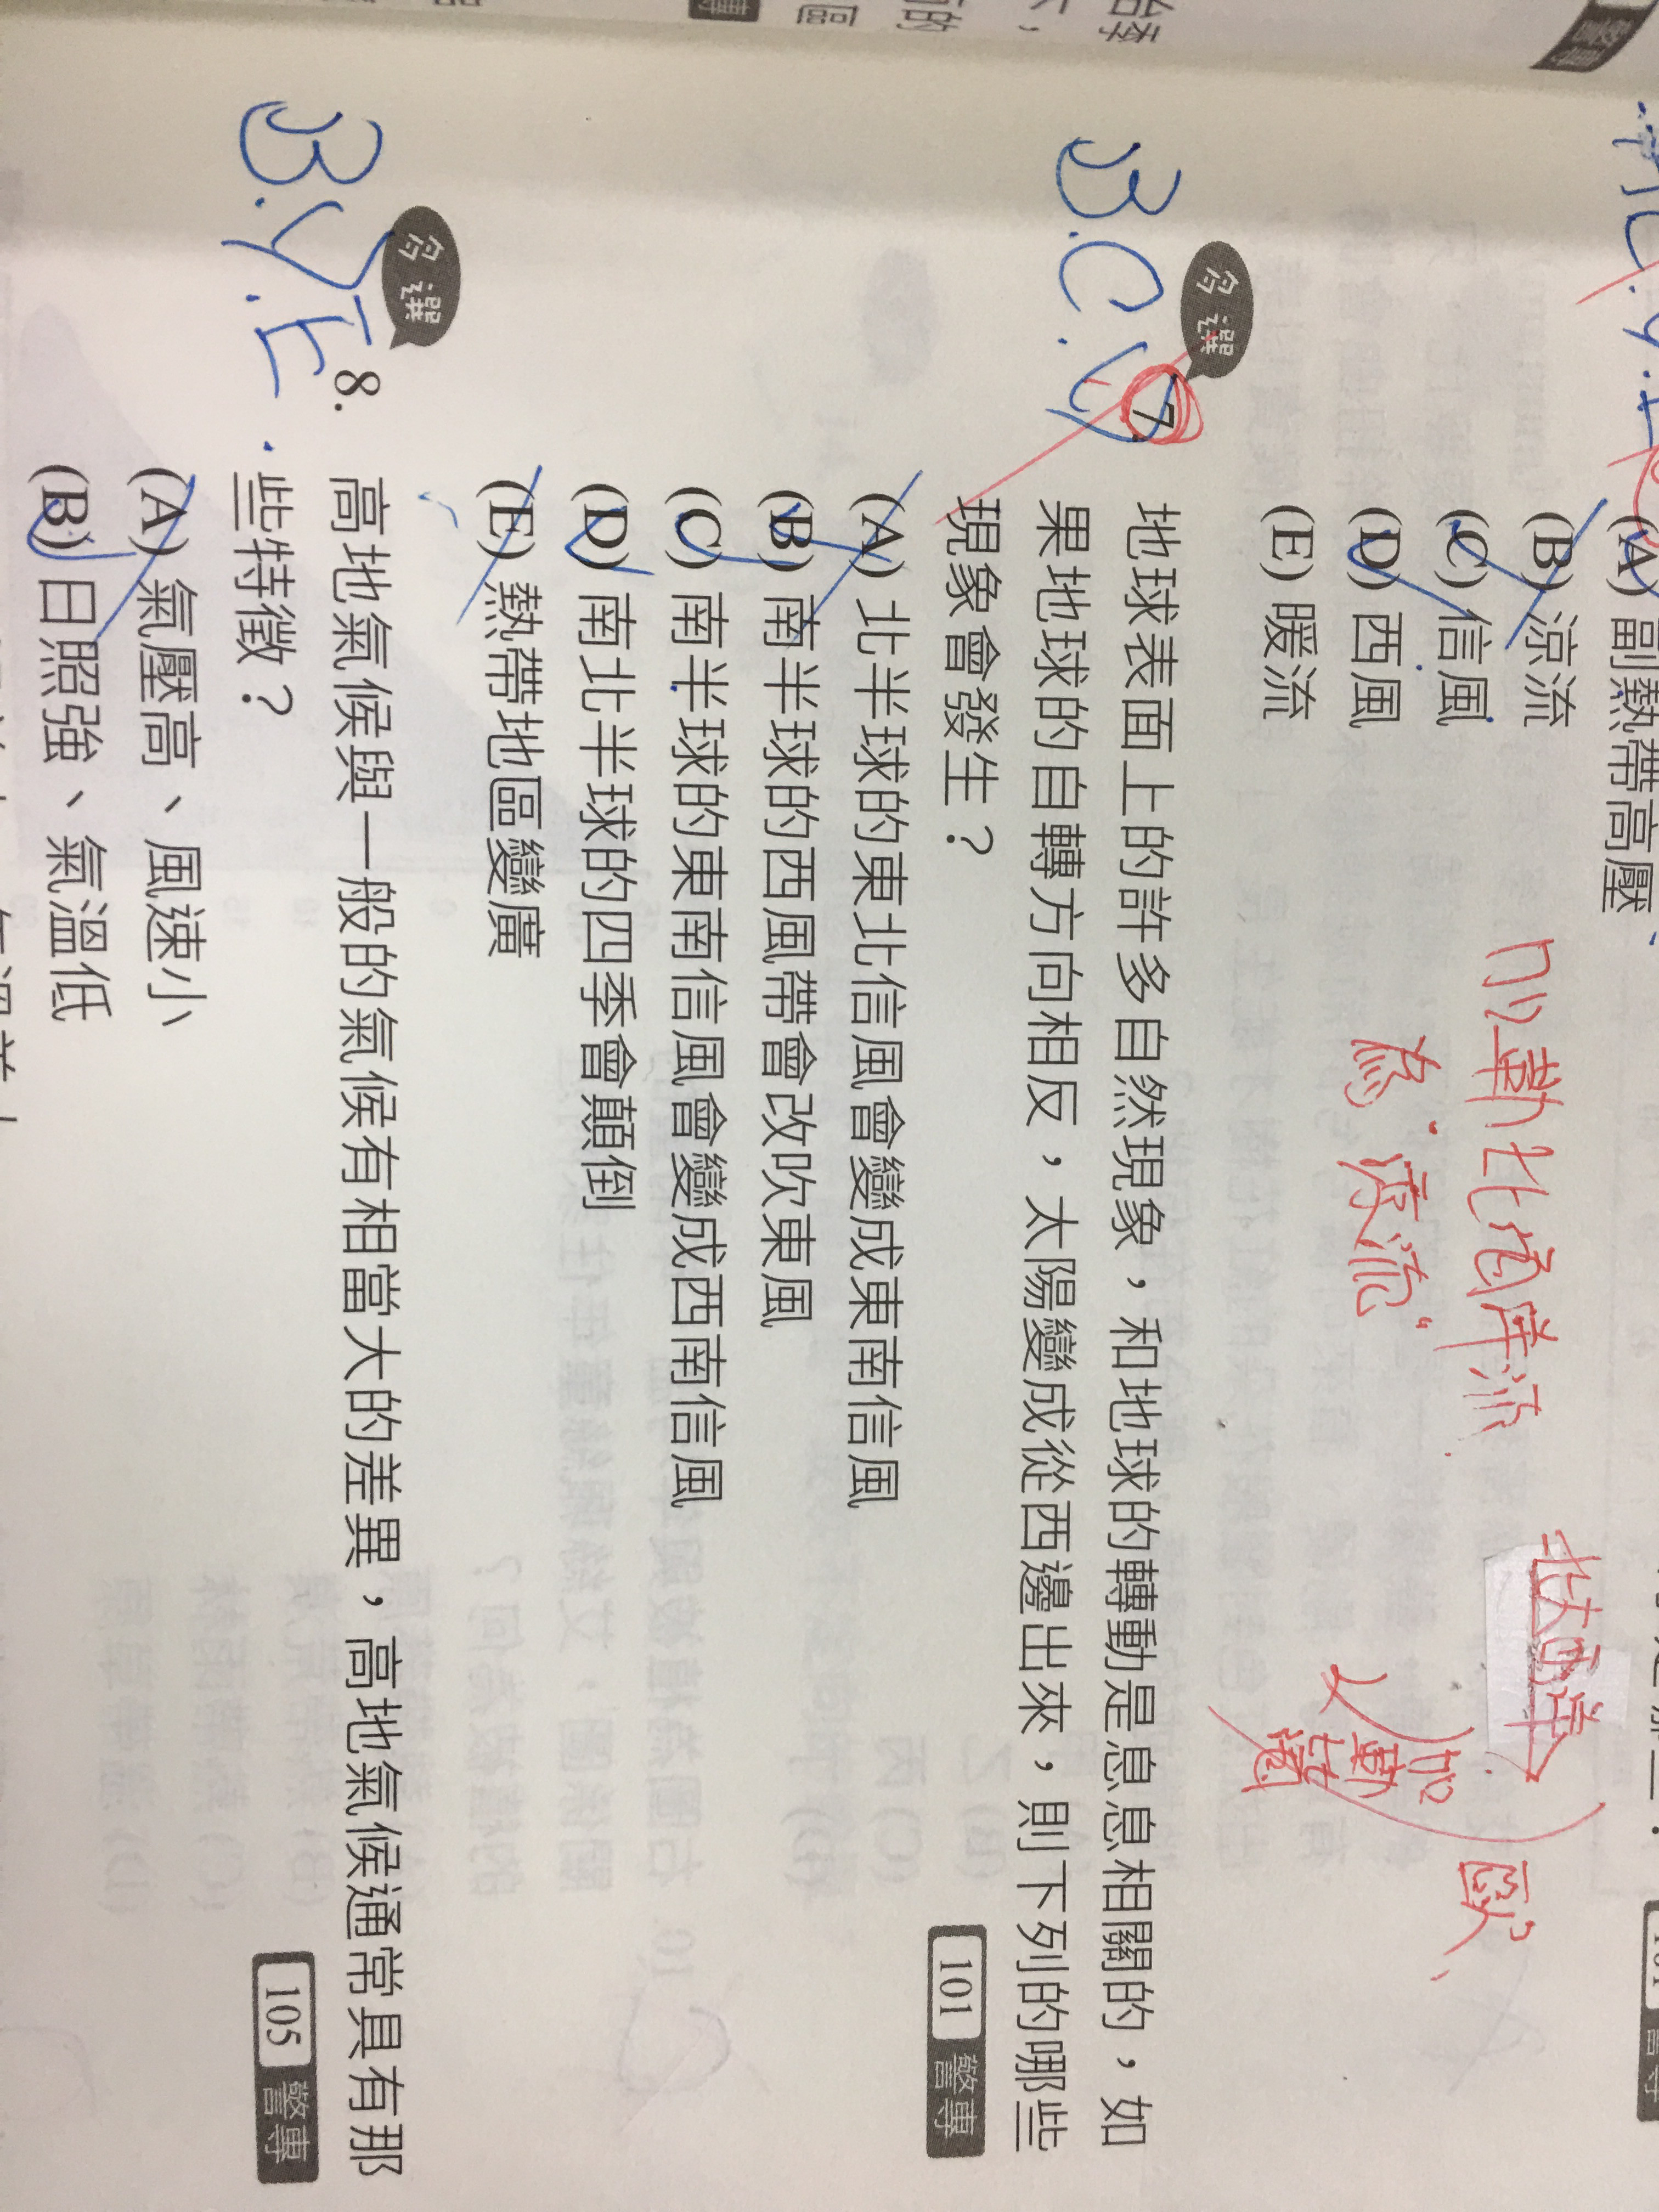 (A) 副熱帶高壓
(B) 涼流
(C) 信風
(D) 西風
(E) 暖流
加勒比海洋流
為"涼流"
北大西洋
加勒
歐
B.C.D
多選
7.
地球表面上的許多自然現象，和地球的轉動是息息相關的，如
果地球的自轉方向相反，太陽變成從西邊出來，則下列的哪些
現象會發生？
101 警專
(A) 北半球的東北信風會變成東南信風
(B) 南半球的西風帶會改吹東風
(C) 南半球的東南信風會變成西南信風
(D) 南北半球的四季會顛倒
(E) 熱帶地區變廣
多選
8. 高地氣候與一般的氣候有相當大的差異，高地氣候通常具有那
些特徵？
105 警專
(A) 氣壓高、風速小
(B) 日照強、氣溫低